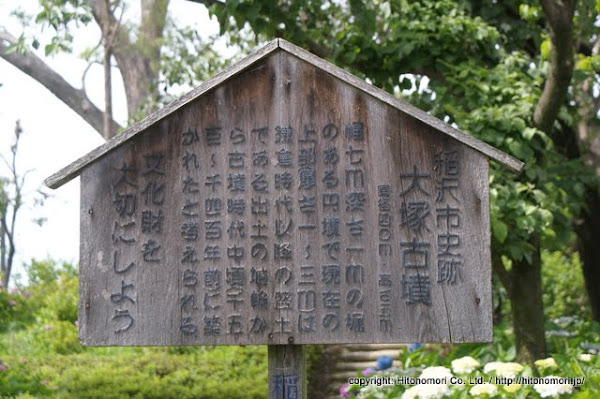 稲沢市史跡
大塚古墳
直径四〇M 高さ五M
幅七M深さ一Mの堀
のある円墳で現在の
上部厚さ一〜三Mは
鎌倉時代以降の盛土
である出土の埴輪か
ら古墳時代中頃千五
百〜千四百年前に築
かれたと考えられる
文化財を
大切にしよう
稲
copyright: Hitonomori Co. Ltd. / http://hitonomori.jp/